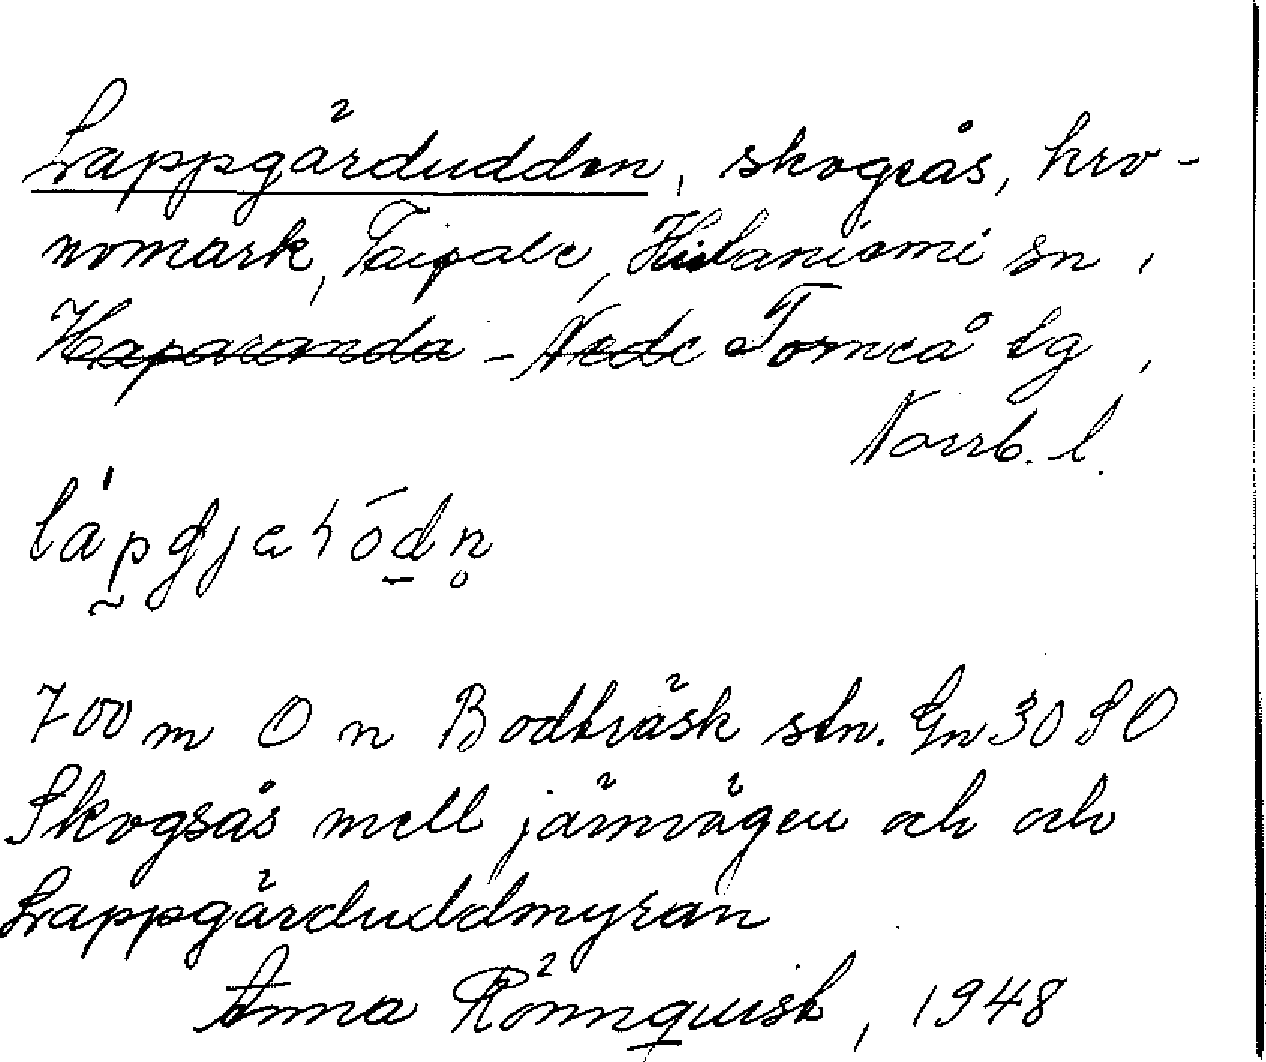 Lappgärdudden, skogsås, kro-
nomark, Taipale, Hietaniemi sn,
Haparanda - Nede Torneå tg,
Norrb. l.
700 m O n Bodträsk stn. Gn 30 SO
Skogsås mell järnvägen och och
Lappgärduddmyran
Anna Rönnquist, 1948